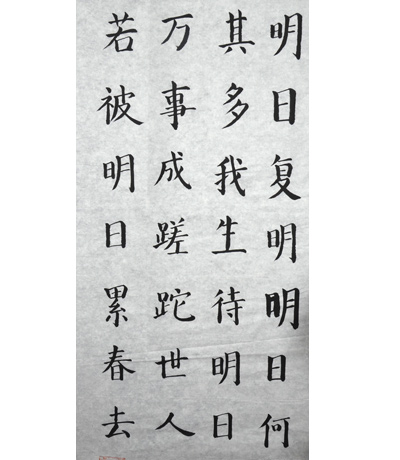 明日复明明日何
其多我生待明日
万事成蹉跎世人
若被明日累春去